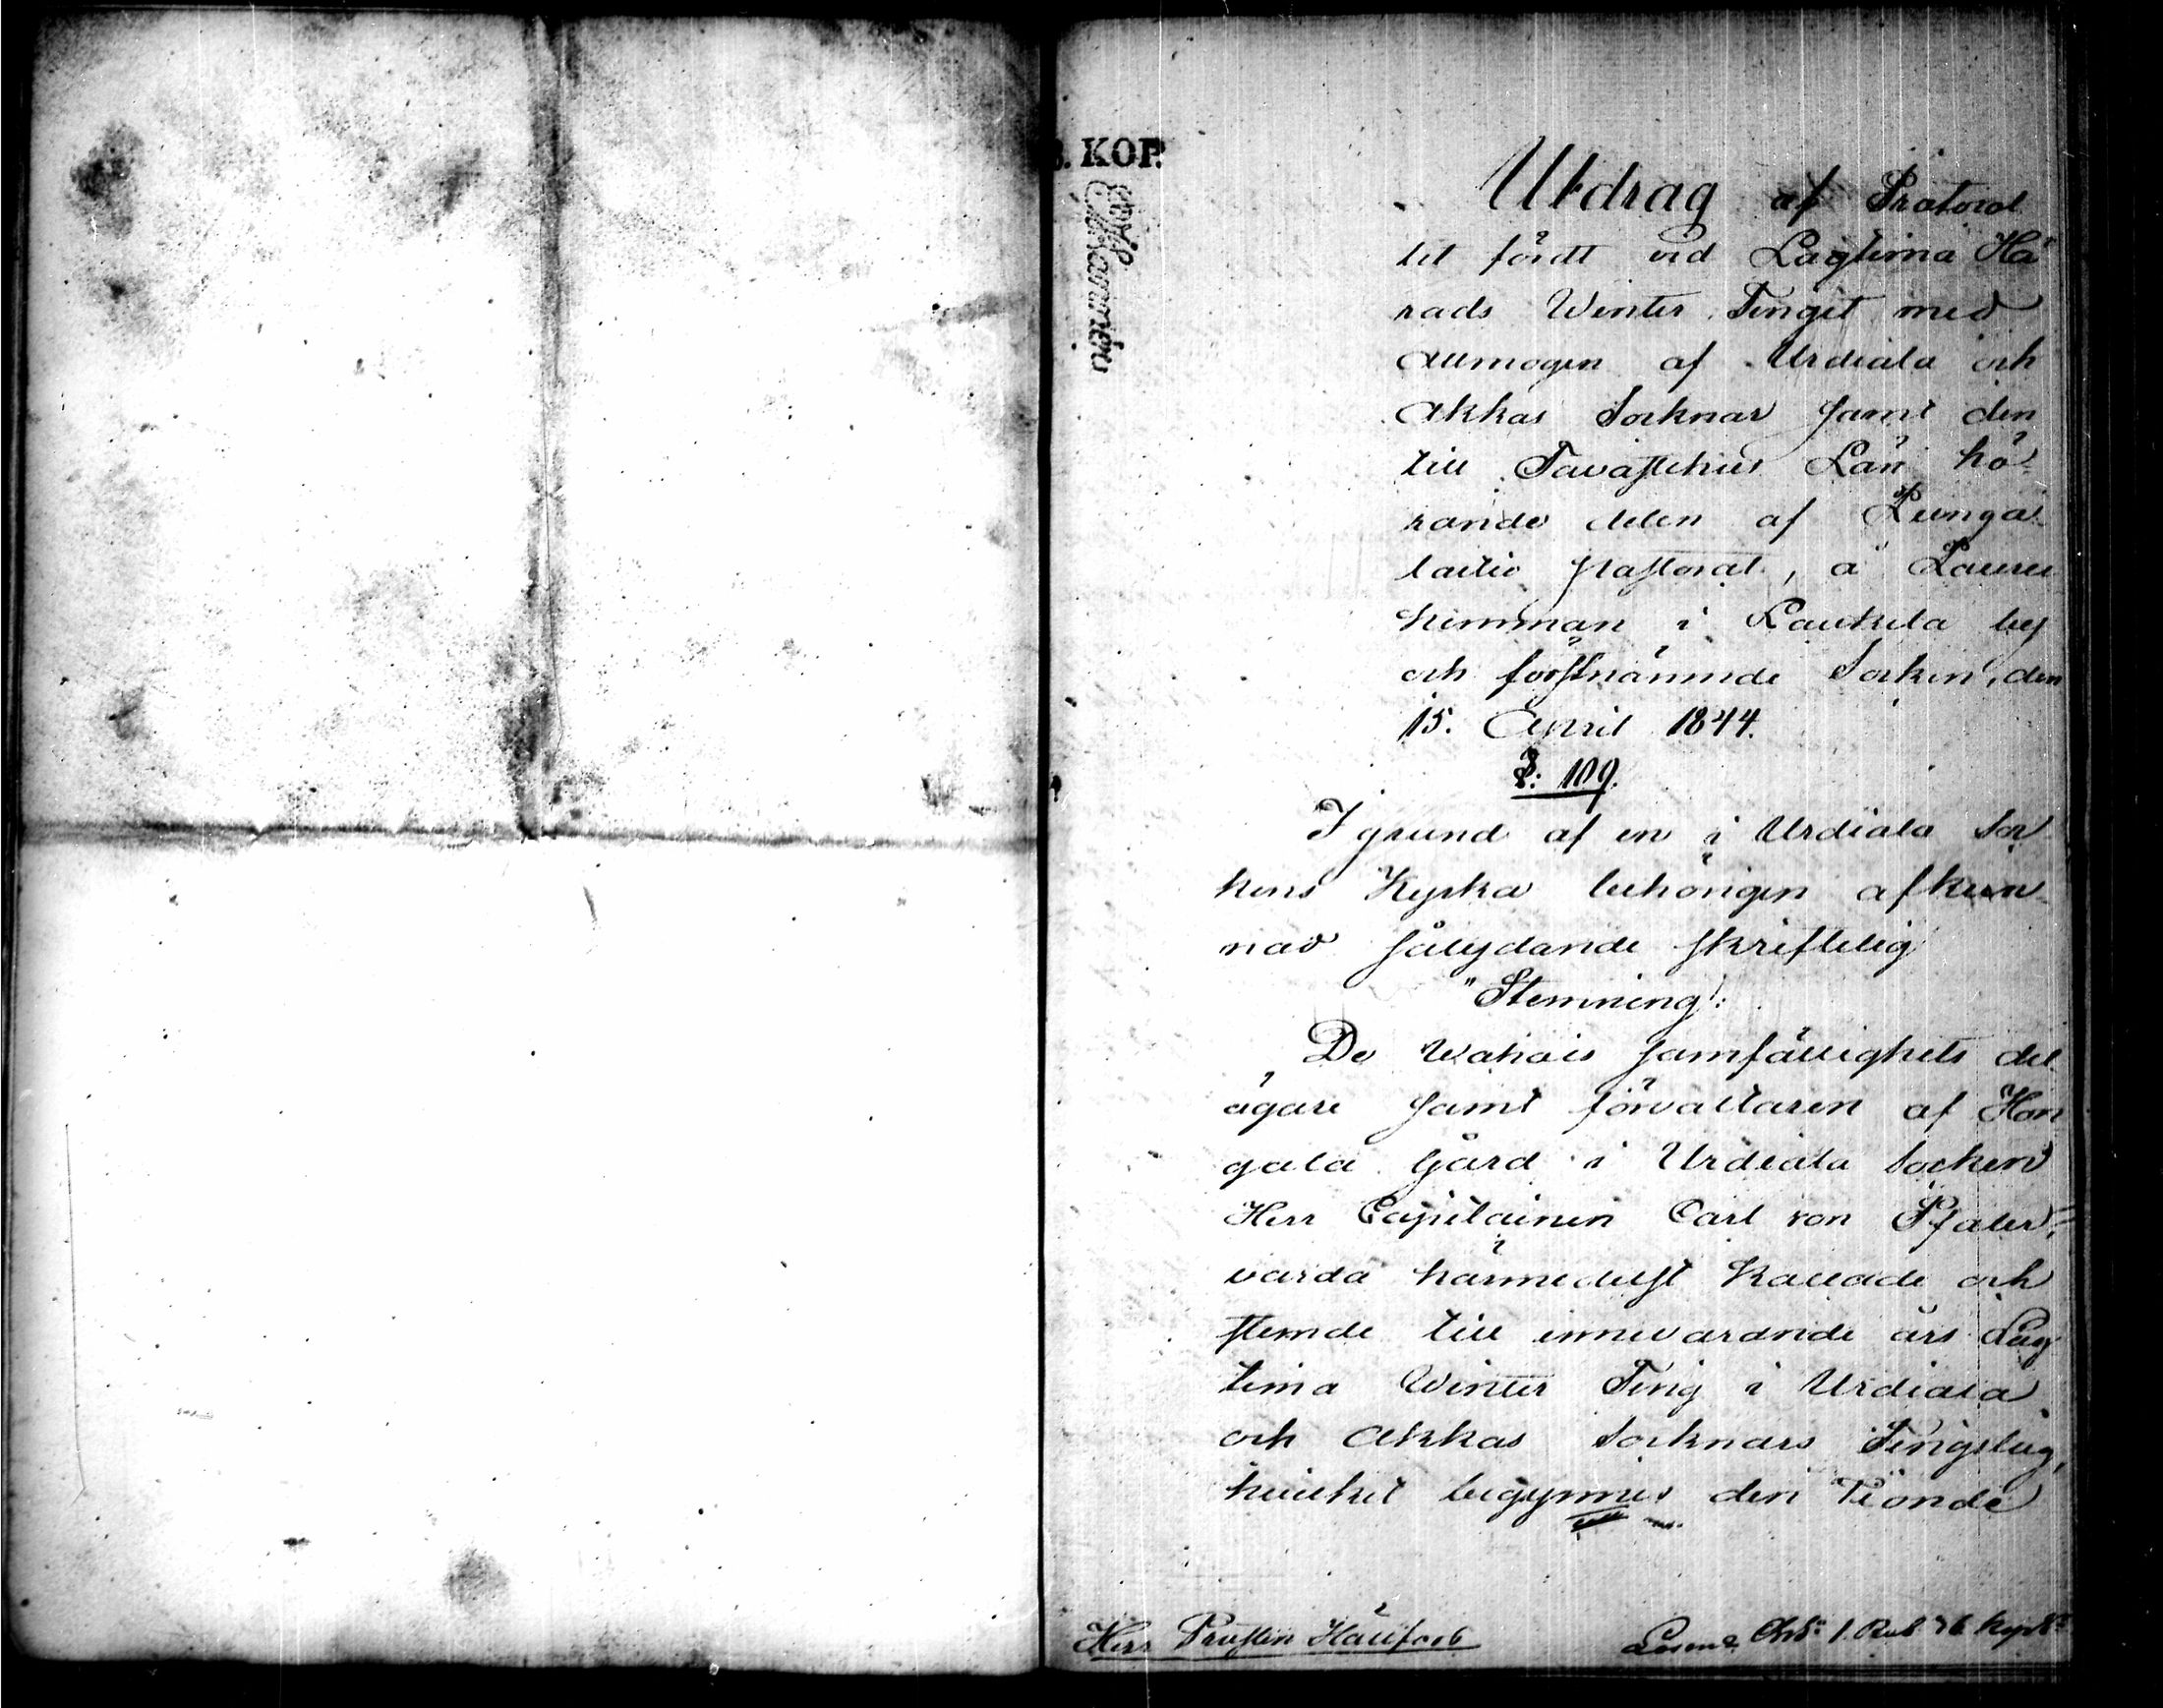 KOP.
Utdrag af Protocol
let fördt vid Lagtima Hä
rads Winter Tinget med
Allmogen af Urdiala och
Akkas Socknar samt den
till Tavastehus Län hö-
rande delen af Punga
laitio pastorat, å Lauru
hemman i Laukela by
och förstnämnde Socken, den
15. April 1844.
§: 109.
I grund af en i Urdiala Soc
kens Kyrka behörigen afkun-
nad sålydande skriftelig
"Stemning:
De Wahais samfällighets del
ägare samt förvaltaren af Hon
gola Gård i Urdiala Socken
Herr Capitainen Carl von Pfaler,
varda härmedelst kallade och
stemde till innevarande års Lag
tima Winter Ting i Urdiala
och Akkas Socknars Tingslag,
hvilket begynnes den Tionde
Herr Prosten Hällfors
Lösen 1. Rub 76 kop Sr